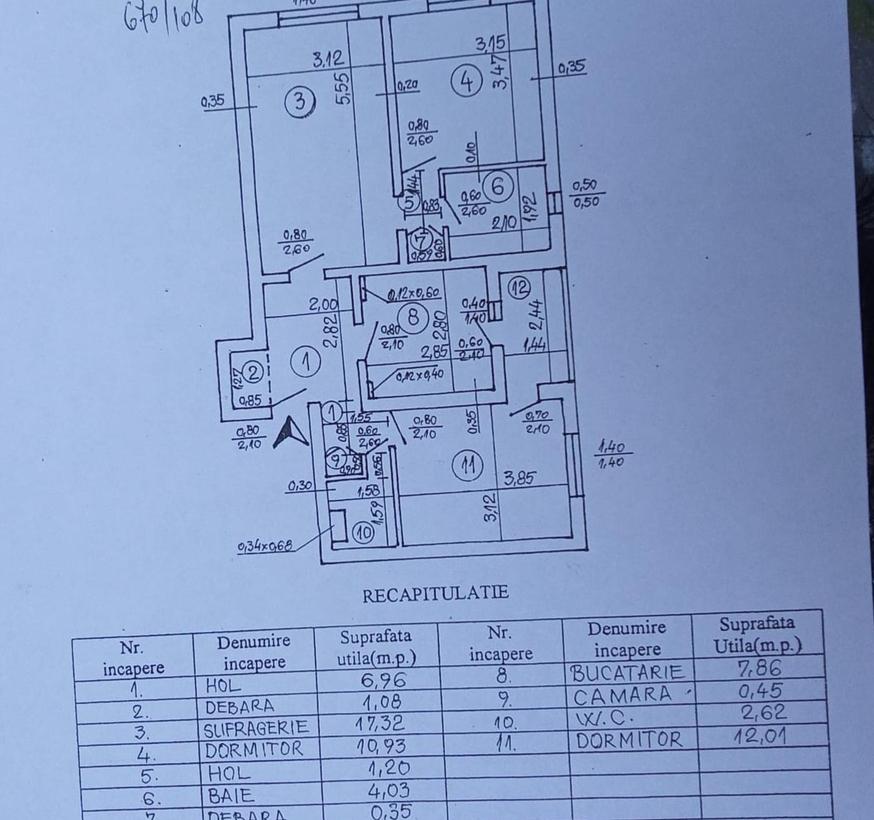 670/108
3,12
3,15
5,55
3,47
3
4
0,35
0,35
0,20
0,80
2,60
0,10
1,44
5
0,83
0,60
2,60
6
1,92
0,50
0,50
2,10
7
0,59
0,60
0,80
2,60
0,12x0,60
12
2,00
2,82
8
0,40
1,40
2,44
0,80
2,10
2,80
2,85
0,60
2,10
1,44
1
2
1,27
0,85
0,12x0,40
0,80
2,10
1
1,55
0,85
0,60
2,60
0,80
2,10
0,35
0,70
2,10
1,40
1,40
9
11
3,85
0,30
1,58
1,59
3,12
10
0,34x0,68
RECAPITULATIE
Nr. incapere Denumire incapere Suprafata utila(m.p.) Nr. incapere Denumire incapere Suprafata Utila(m.p.)
1. HOL 6,96 8. BUCATARIE 7,86
2. DEBARA 1,08 9. CAMARA 0,45
3. SUFRAGERIE 17,32 10. W.C. 2,62
4. DORMITOR 10,93 11. DORMITOR 12,01
5. HOL 1,20
6. BAIE 4,03
7. DEBARA 0,35